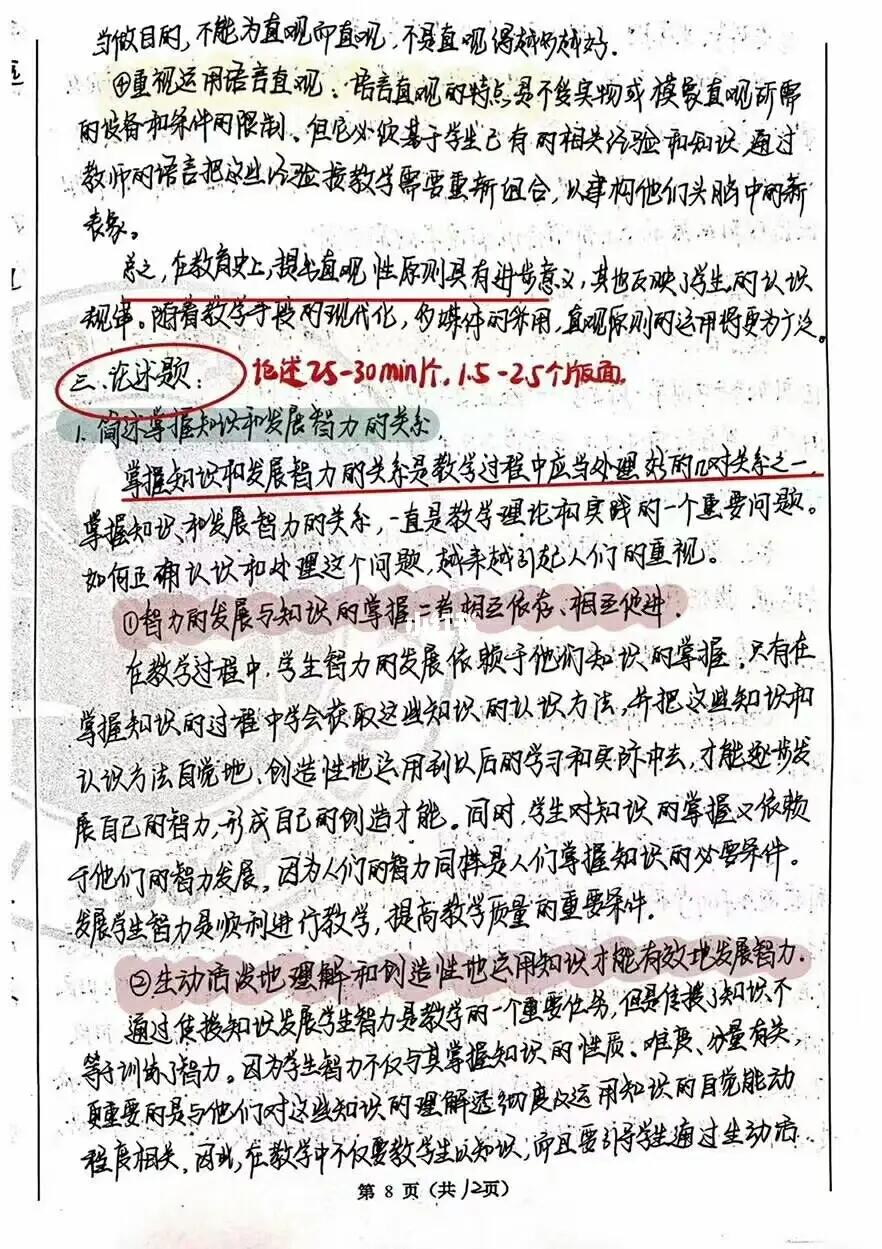 当做目的,不能为直观而直观,不是直观得越多越好.
④重视运用语言直观。语言直观的特点是不受实物或模象直观所需
的设备和条件的限制、但它必须基于学生已有的相关经验和知识,通过
教师的语言把这些经验按教学需要重新组合,以建构他们头脑中的新
表象。
总之,在教育史上,提出直观性原则具有进步意义,其也反映了学生的认识
规律。随着教学手段的现代化,多媒体的采用,直观原则的运用将更为广泛。
三.论述题: 论述25-30min/个.1.5-2.5个版面.
1.简述掌握知识和发展智力的关系.
掌握知识和发展智力的关系是教学过程中应当处理好的几对关系之一.
掌握知识和发展智力的关系,一直是教学理论和实践的一个重要问题。
如何正确认识和处理这个问题,越来越引起人们的重视。
①智力的发展与知识的掌握二者相互依存、相互促进.
在教学过程中,学生智力的发展依赖于他们知识的掌握.只有在
掌握知识的过程中学会获取这些知识的认识方法,并把这些知识和
认识方法自觉地、创造性地运用到以后的学习和实际中去,才能逐步发
展自己的智力,形成自己的创造才能。同时,学生对知识的掌握又依赖
于他们的智力发展。因为人们的智力同样是人们掌握知识的必要条件。
发展学生智力是顺利进行教学,提高教学质量的重要条件.
②生动活泼地理解和创造性地运用知识才能有效地发展智力.
通过传授知识发展学生智力是教学的一个重要任务,但是传授了知识不
等于训练了智力。因为学生智力不仅与其掌握知识的性质、难度、分量有关,
更重要的是与他们对这些知识的理解透彻度及运用知识的自觉能动
程度相关.因此,在教学中不仅要教学生以知识,而且要引导学生通过生动活
第 8 页(共12页)